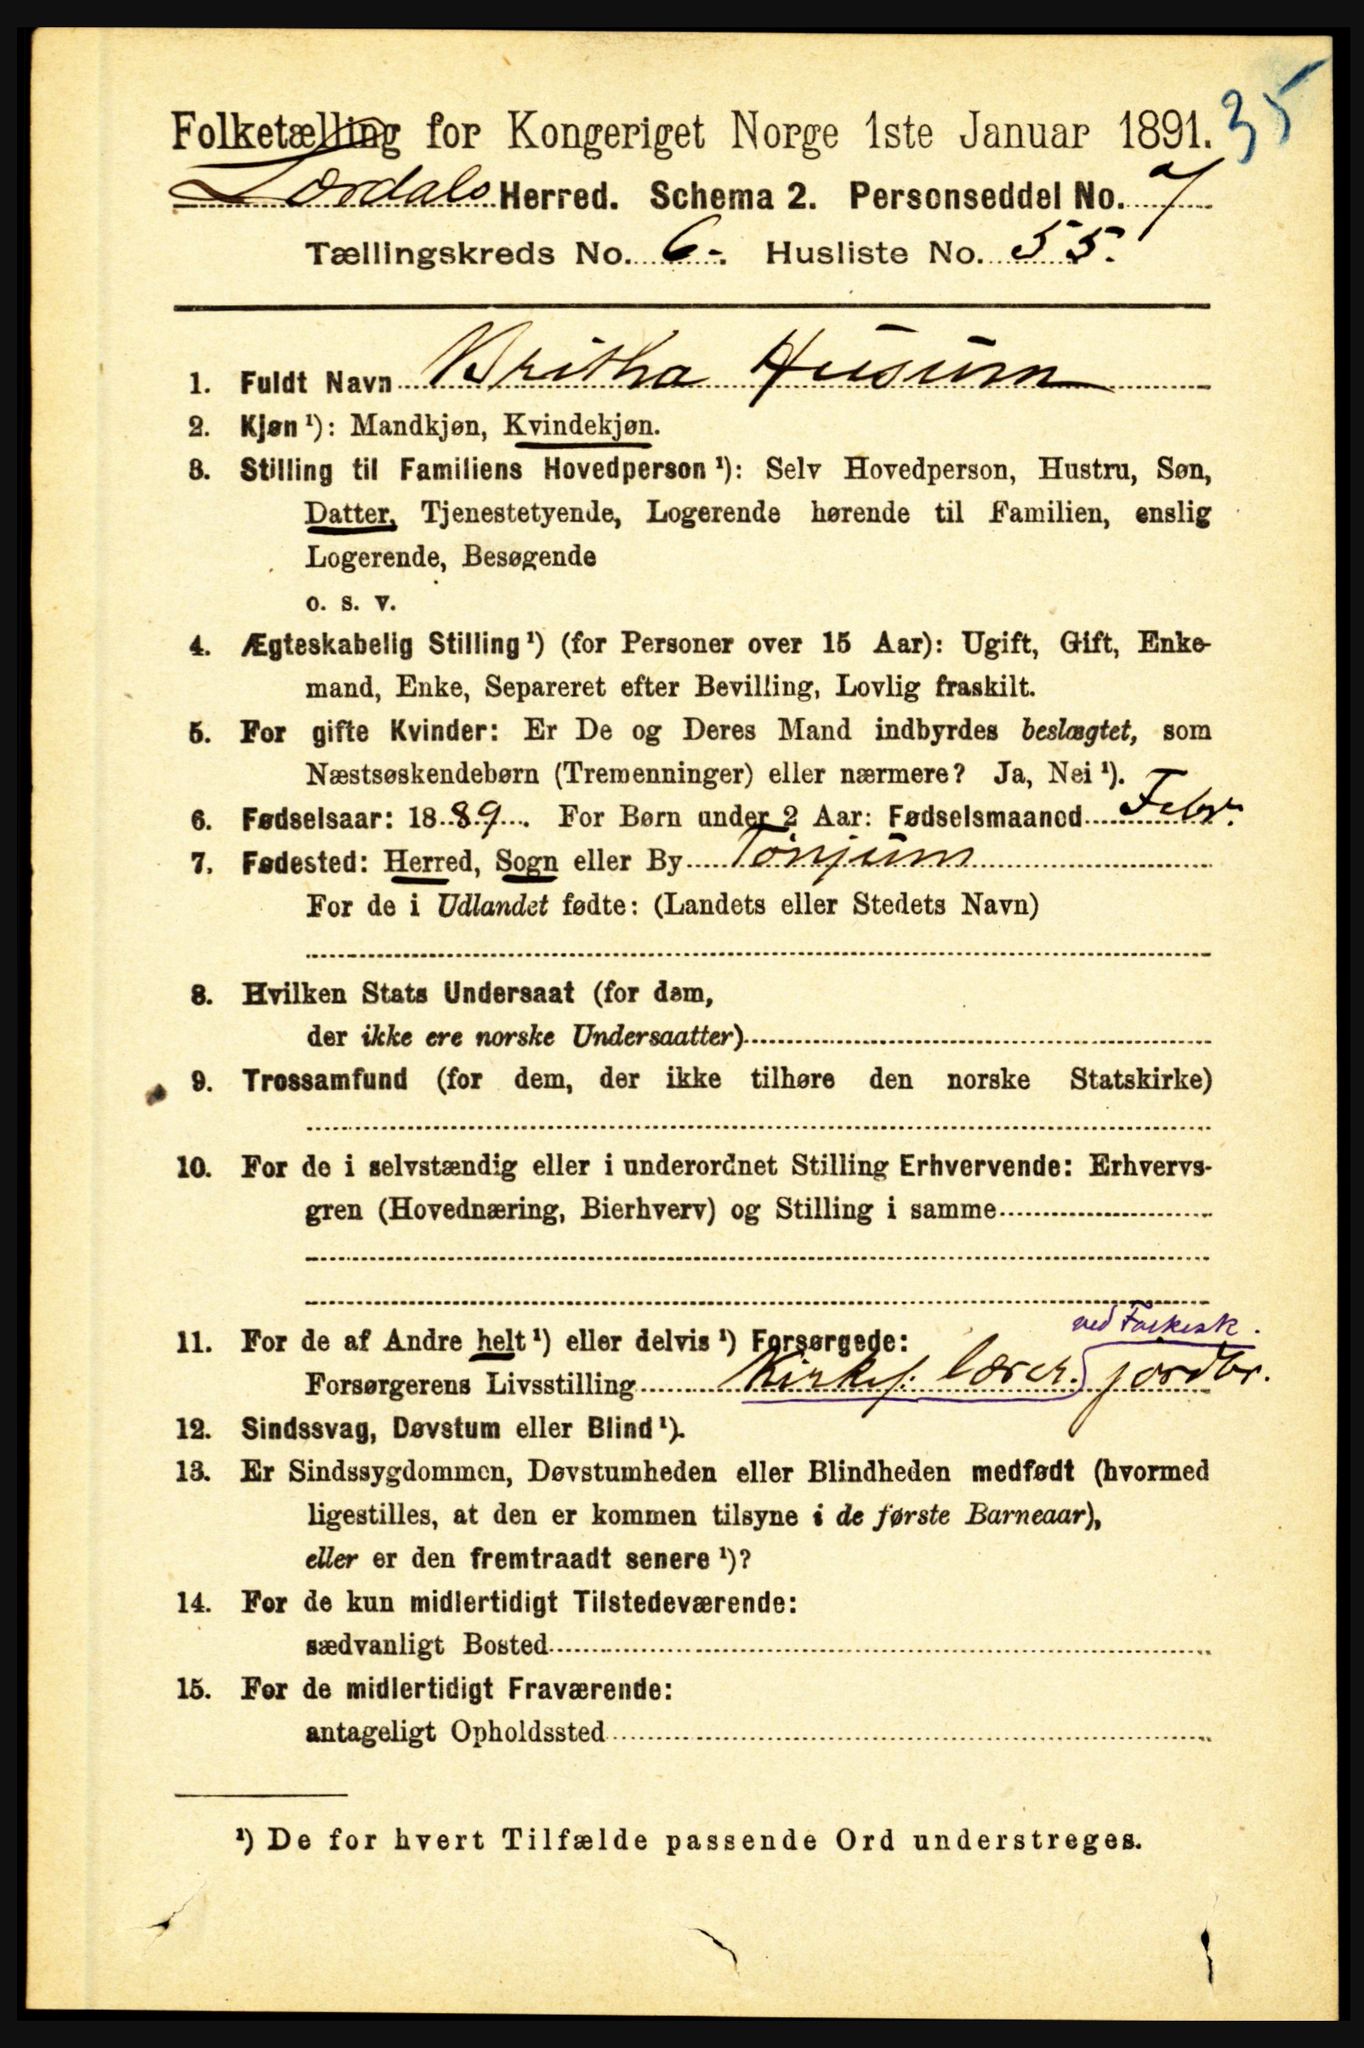 35
Folketælling for Kongeriget Norge 1ste Januar 1891.
Lærdals Herred. Schema 2. Personseddel No. 7
Tællingskreds No. 6. Husliste No. 55.
1. Fuldt Navn Britha Husum
2. Kjøn ¹): Mandkjøn, Kvindekjøn.
3. Stilling til Familiens Hovedperson ¹): Selv Hovedperson, Hustru, Søn,
Datter, Tjenestetyende, Logerende hørende til Familien, enslig
Logerende, Besøgende
o. s. v.
4. Ægteskabelig Stilling ¹) (for Personer over 15 Aar): Ugift, Gift, Enke-
mand, Enke, Separeret efter Bevilling, Lovlig fraskilt.
5. For gifte Kvinder: Er De og Deres Mand indbyrdes beslægtet, som
Næstsøskendebørn (Tremenninger) eller nærmere? Ja, Nei ¹).
6. Fødselsaar: 1889. For Børn under 2 Aar: Fødselsmaaned Febr.
7. Fødested: Herred, Sogn eller By Tønjum
For de i Udlandet fødte: (Landets eller Stedets Navn)
8. Hvilken Stats Undersaat (for dem,
der ikke ere norske Undersaatter)
9. Trossamfund (for dem, der ikke tilhøre den norske Statskirke)
10. For de i selvstændig eller i underordnet Stilling Erhvervende: Erhvervs-
gren (Hovednæring, Bierhverv) og Stilling i samme
ved Folkesk.
11. For de af Andre helt ¹) eller delvis ¹) Forsørgede:
Forsørgerens Livsstilling Kirkes. lærer. jordbr.
12. Sindssvag, Døvstum eller Blind ¹).
13. Er Sindssygdommen, Døvstumheden eller Blindheden medfødt (hvormed
ligestilles, at den er kommen tilsyne i de første Barneaar),
eller er den fremtraadt senere ¹)?
14. For de kun midlertidigt Tilstedeværende:
sædvanligt Bosted
15. For de midlertidigt Fraværende:
antageligt Opholdssted
¹) De for hvert Tilfælde passende Ord understreges.